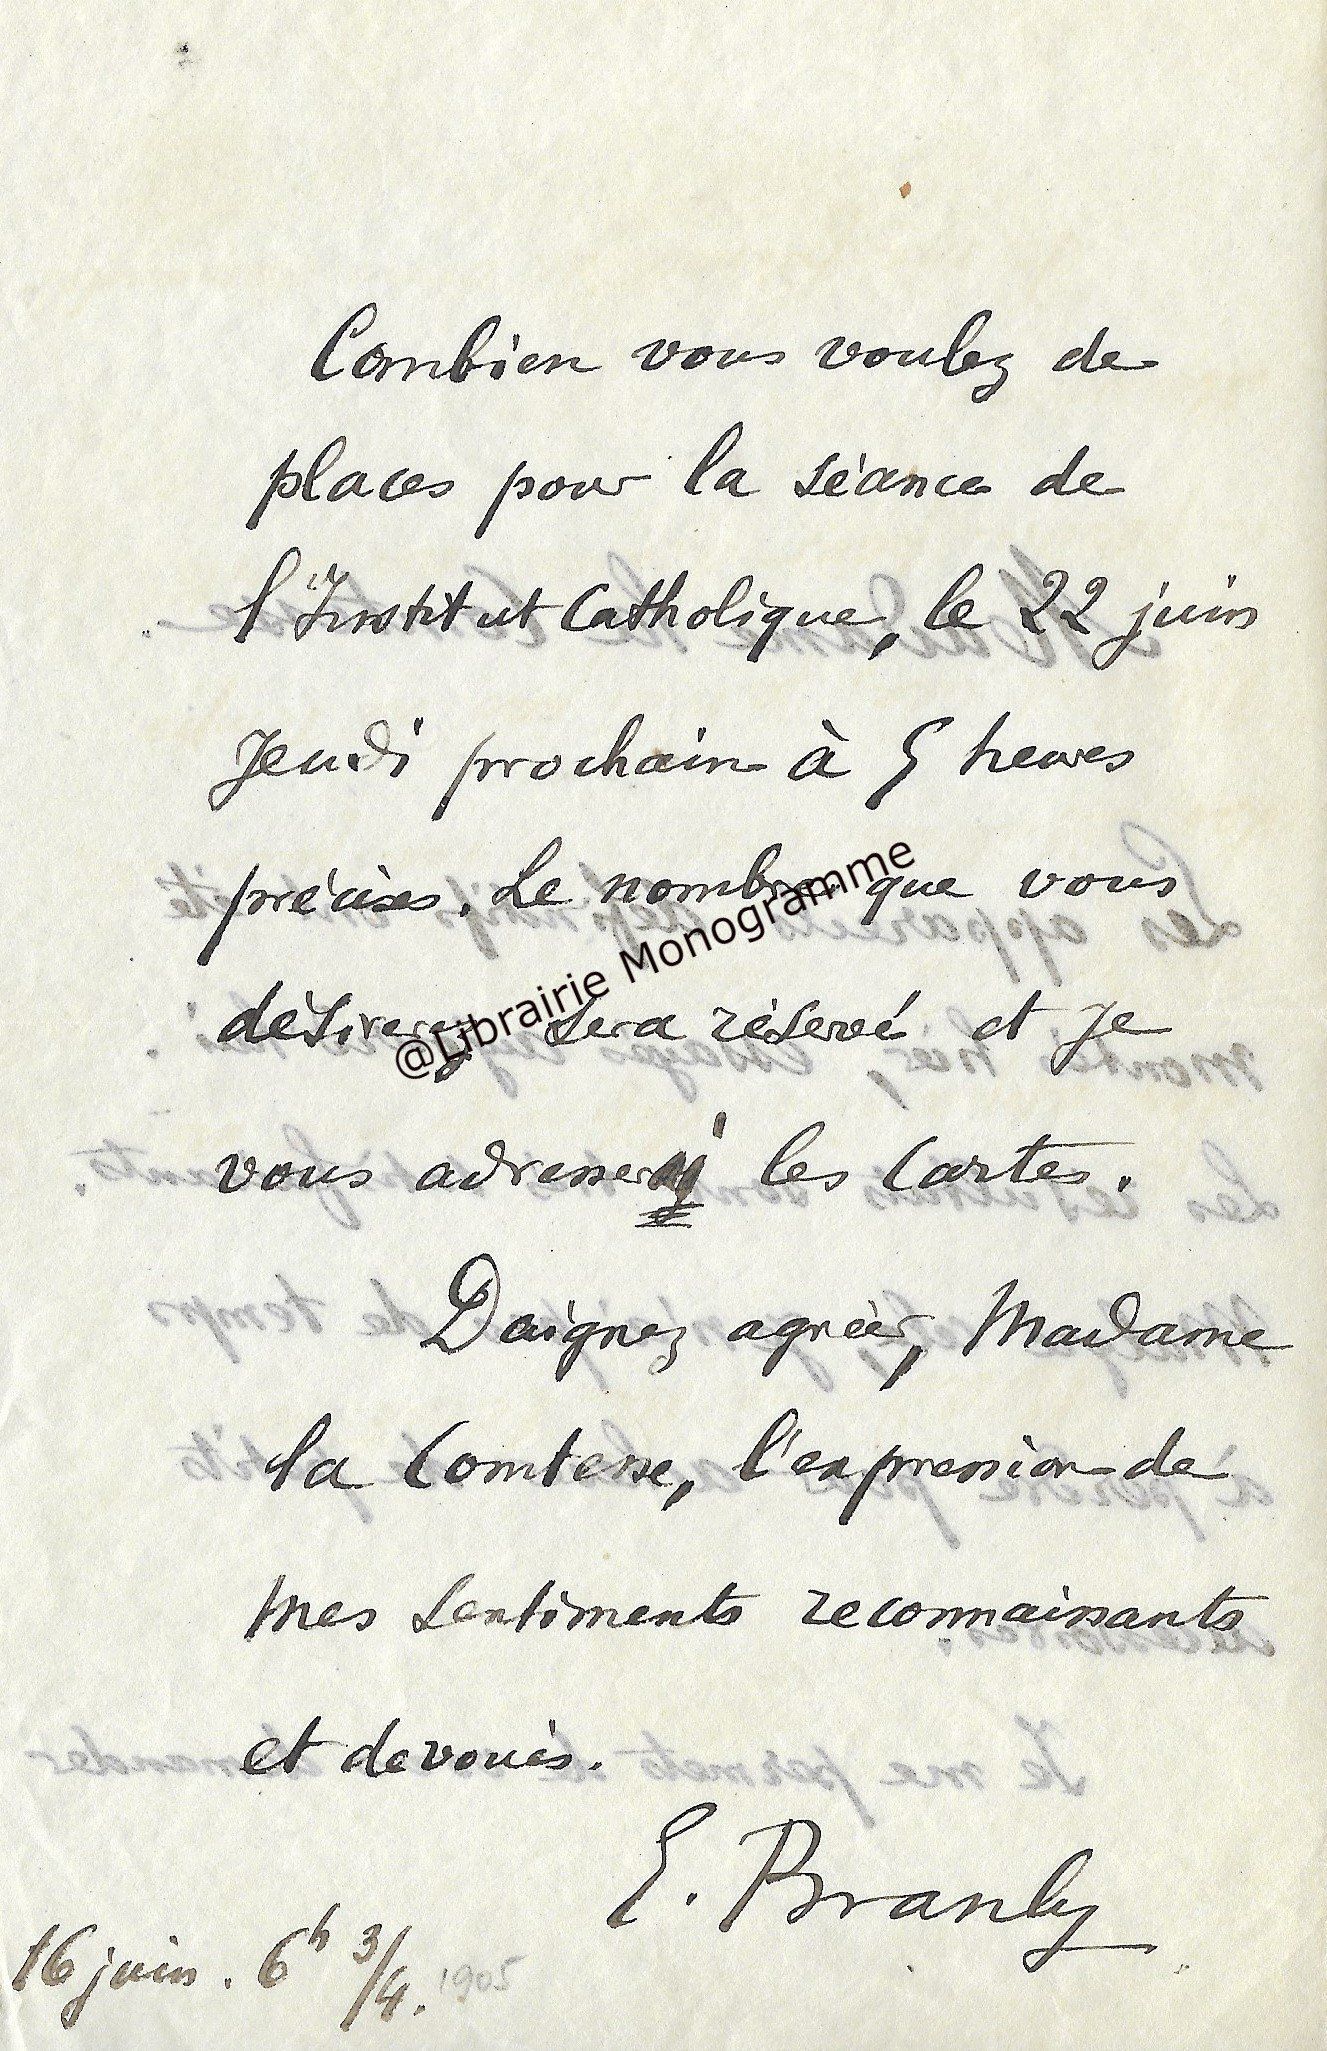 Combien vous voulez de
places pour la séance de
l'Institut Catholique, le 22 juin
Jeudi prochain à 5 heures
précises. Le nombre que vous
désirerez sera réservé et je
vous adresserai les cartes.
Daignez agréer, Madame
la Comtesse, l'expression de
mes sentiments reconnaissants
et devoués.
E. Branly
16 juin. 6h 3/4. 1905
@Librairie Monogramme